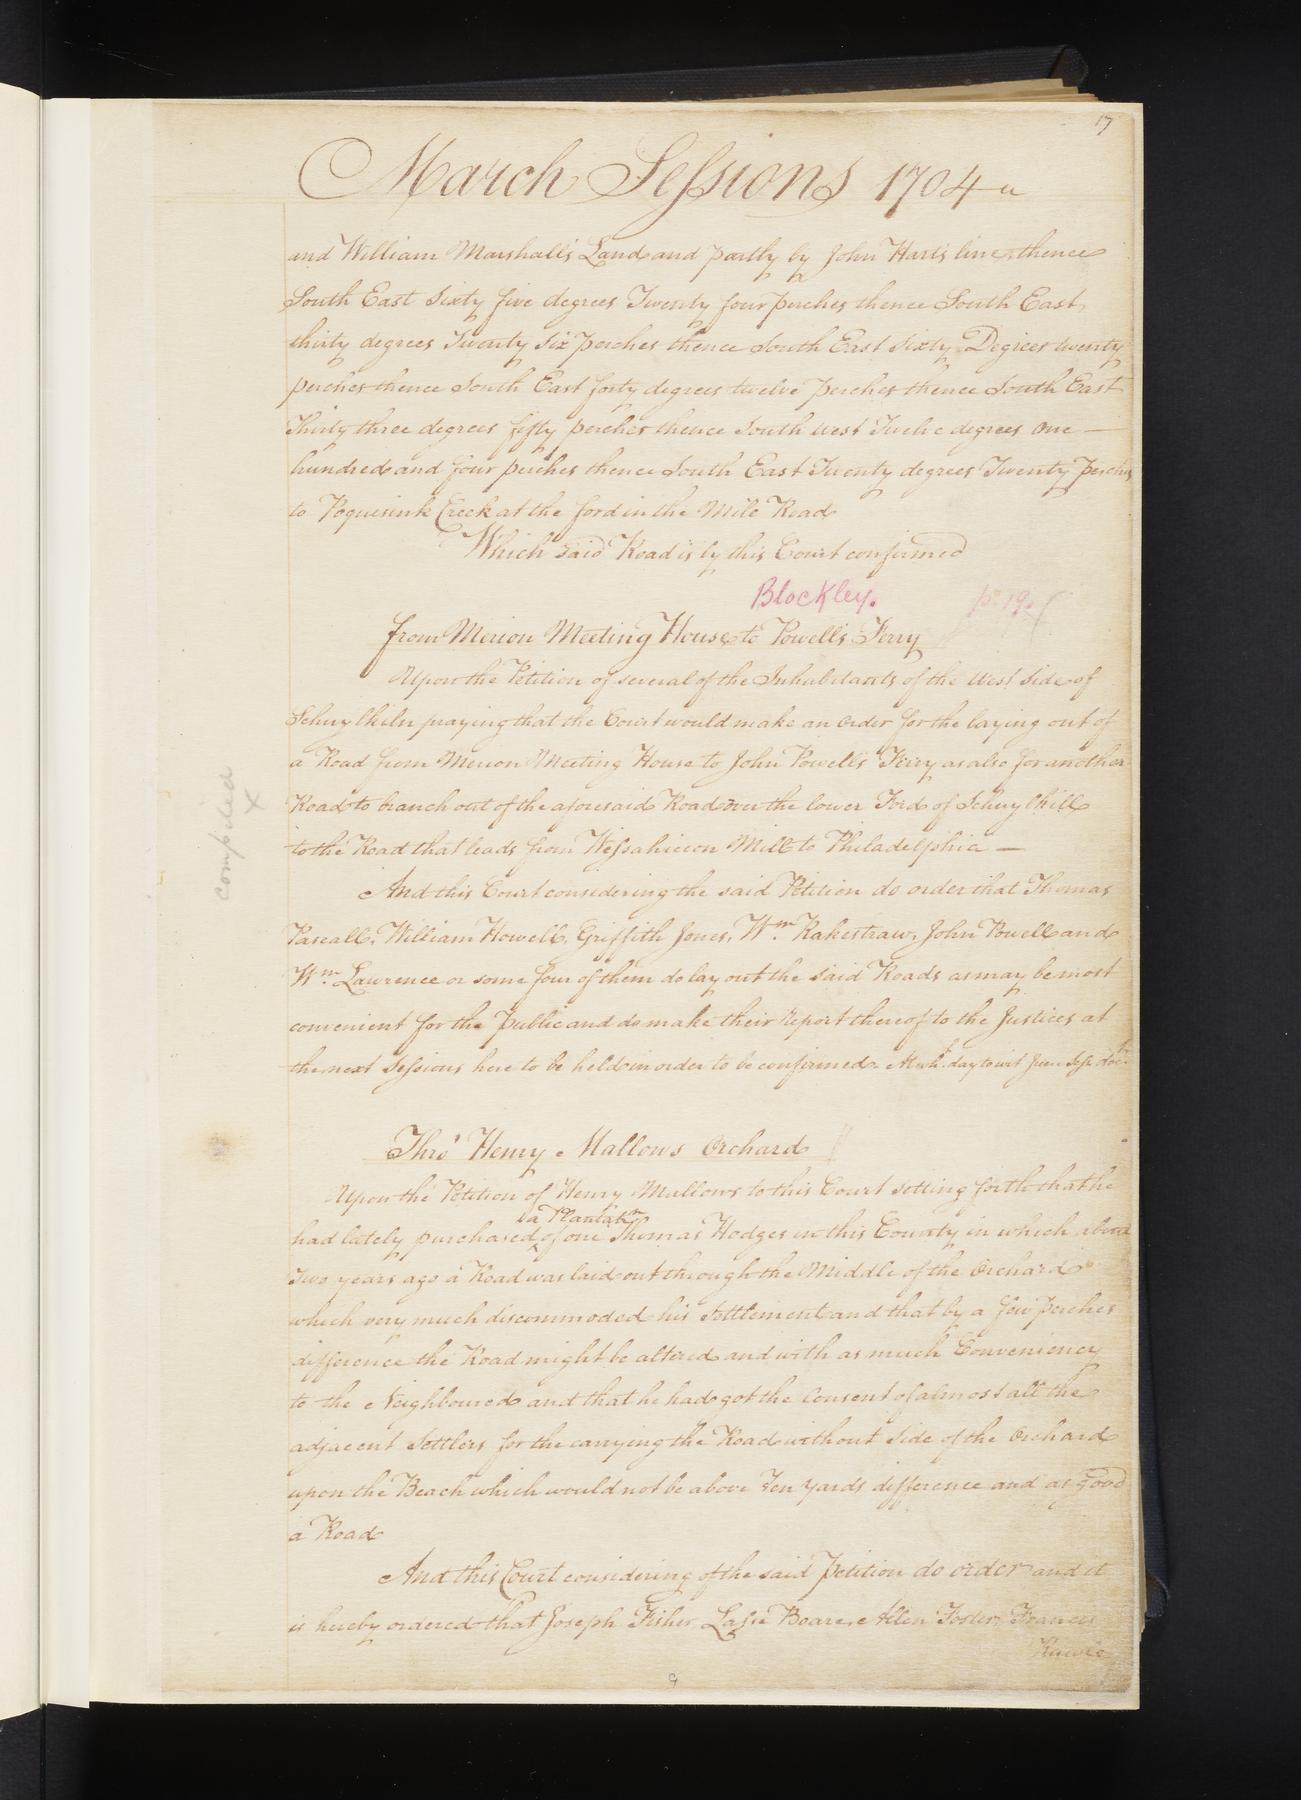 17
March Sessions 1704
and William Marshall's Land and partly by John Hart's line thence
South East Sixty five degrees Twenty four perches thence South East
thirty degrees Twenty Six perches thence South East Sixty Degrees twenty
perches thence South East forty degrees twelve perches thence South East
Thirty three degrees fifty perches thence South West Twelve degrees One
hundred and four perches thence South East Twenty degrees Twenty Perches
to Poquesink Creek at the ford in the Mile Road
Which said Road is by this Court confirmed
Blockley. p. 19.
from Merion Meeting House to Powell's Ferry
Upon the Petition of several of the Inhabitants of the West Side of
Schuylkiln praying that the Court would make an order for the laying out of
a Road from Merion Meeting House to John Powells Ferry as also for another
Road to branch out of the aforesaid Road over the lower Ford of Schuylkill
to the Road that leads from Wessahiccon Mill to Philadelphia
compiled x
And this Court considering the said Petition do order that Thomas
Pascall, William Howell, Griffith Jones, Wm. Rakestraw, John Powell and
Wm. Lawrence or some four of them do lay out the said Roads as may be most
convenient for the Public and do make their report thereof to the Justices at
the next Sessions here to be held in order to be confirmed. day to wit June Sess.
Thro' Henry Mallows Orchard
Upon the Petition of Henry Mallows to this Court setting forth that he
a Plantatn
had lately purchased of one Thomas Hodges in this County in which about
Two years ago a Road was laid out through the Middle of the Orchard
which very much discommoded his Settlement and that by a few perches
difference the Road might be altered and with as much Conveniency
to the Neighboured and that he had got the Consent of almost all the
adjacent Settlers for the carrying the Road without Side of the Orchard
upon the Beach which would not be above Ten yards difference and as good
a Road
And this Court considering of the said Petition do order and it
is hereby ordered that Joseph Fisher, Lasse Boare, Allen Foster, Francis
9